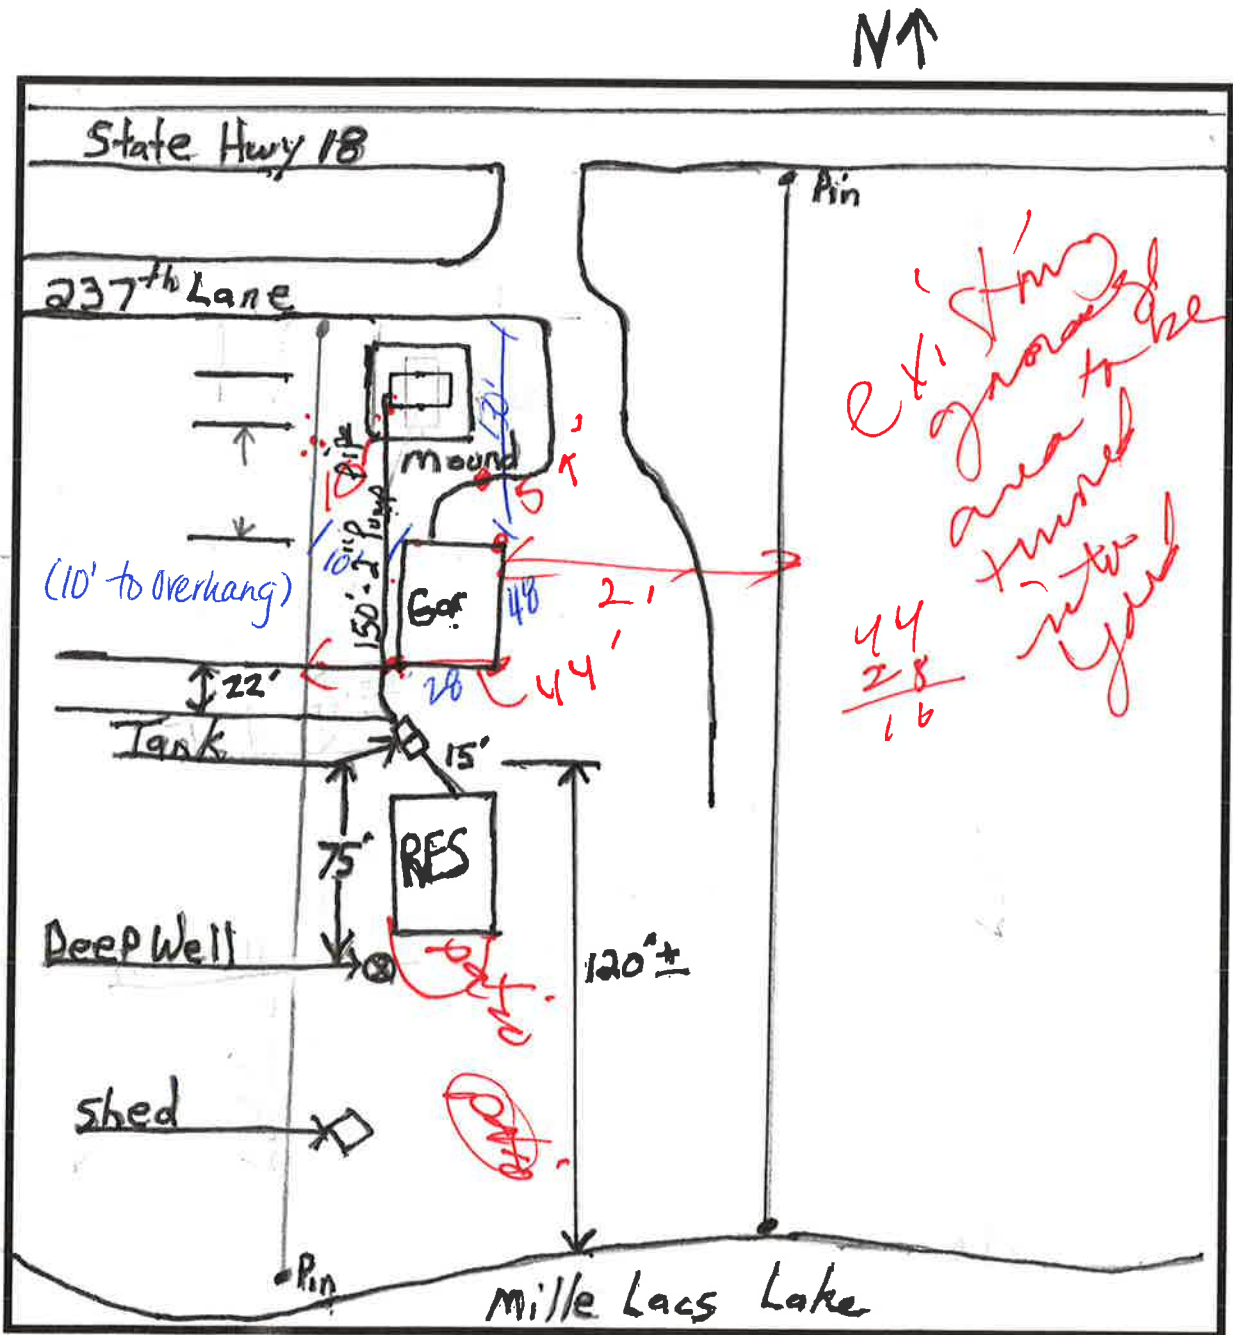 N↑
State Hwy 18
Pin
237th Lane
existing
gravel
area to be
turned
into
yard
130'
10'
Mound
5'
150'-2" Pump
10'
(10' to overhang)
Gar
48
21'
28
44'
44
28
16
22'
Tank
15'
75'
RES
Deep Well
patio
120'±
shed
patio
Pin
Mille Lacs Lake